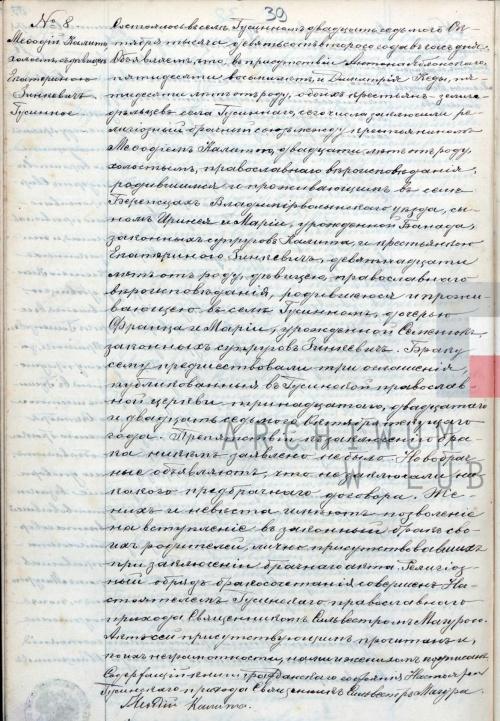 39
№ 8.
Меѳодій Калита
холостъ съ дѣвицею
Екатериною
Зинкевичъ
Гусинное
Состоялось въ селѣ Гусинномъ двадцать седьмого Ок-
тября тысяча девятьсотъ второго года въ часъ дня.
Объявляемъ, что, въ присутствіи Антона
пятидесяти восьми лѣтъ и Димитрія Кеды, пя-
тидесяти лѣтъ отъ роду, обоихъ крестьянъ-земле-
дѣльцевъ села Гусиннаго, сего числа заключили ре-
лигіозный брачный союзъ между крестьяниномъ
Меѳодіемъ Калитою, двадцати лѣтъ отъ роду,
холостымъ, православнаго вѣроисповѣданія,
родившимся и проживающимъ въ селѣ
Бережцахъ Владимірволынскаго уѣзда, сы-
номъ Иринея и Маріи, урожденной Банада,
законныхъ супруговъ Калита, и крестьянкою
Екатериною Зинкевичъ, девятнадцати
лѣтъ отъ роду, дѣвицею, православнаго
вѣроисповѣданія, родившеюся и прожи-
вающею въ селѣ Гусинномъ, дочерью
Франца и Маріи, урожденной Семенюкъ,
законныхъ супруговъ Зинкевичъ. Браку
сему предшествовали три оглашенія,
публикованныя въ Гусинской православ-
ной церкви тринадцатаго, двадцатаго
и двадцать седьмого Октября текущаго
года. Препятствій къ заключенію бра-
ка никѣмъ заявлено не было. Новобрач-
ные объявляютъ, что не заключали ни-
какого предбрачнаго договора. Же-
нихъ и невѣста имѣютъ позволеніе
на вступленіе въ законный бракъ сво-
ихъ родителей, лично присутствовавшихъ
при заключеніи брачнаго акта. Религіоз-
ный обрядъ бракосочетанія совершенъ На-
стоятелемъ Гусинскаго православнаго
прихода Священникомъ Сильвестромъ Мацурою.
Актъ сей присутствующимъ прочитанъ и,
по ихъ неграмотности, нами и женихомъ подписанъ.
Содержащій книги гражданскаго состоянія Настоятель
Гусинскаго прихода Священникъ Сильвестръ Мацура.
Меѳодій Калита.
ARCHIWUM
W LUB